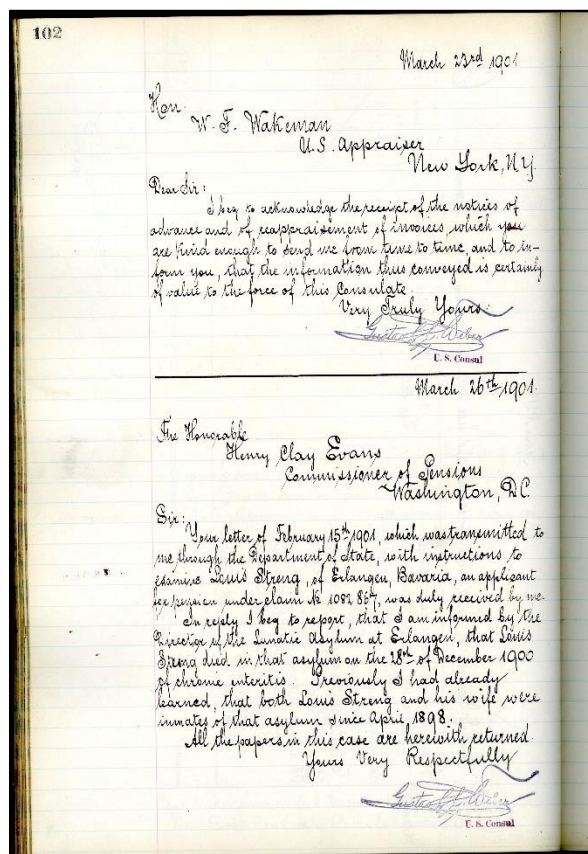 102
March 23rd 1901
Hon.
W. F. Wakeman
U.S. Appraiser
New York, N.Y.
Dear Sir:
I beg to acknowledge the receipt of the notices of
advance and of reappraisement of invoices, which you
are kind enough to send me from time to time, and to in-
form you, that the information thus conveyed is certainly
of value to the force of this Consulate.
Very Truly Yours
Weber
U. S. Consul
March 26th 1901.
The Honorable
Henry Clay Evans
Commissioner of Pensions
Washington, D.C.
Sir:
Your letter of February 15th 1901, which was transmitted to
me through the Department of State, with instructions to
examine Louis Streng, of Erlangen, Bavaria, an applicant
for pension under claim № 1082 867, was duly received by me.
In reply I beg to report, that I am informed by the
Director of the Lunatic Asylum at Erlangen, that Louis
Streng died in that asylum on the 28th of December 1900
of chronic enteritis. Previously I had already
learned, that both Louis Streng and his wife were
inmates of that asylum since April 1898.
All the papers in this case are herewith returned.
Yours Very Respectfully
Weber
U. S. Consul